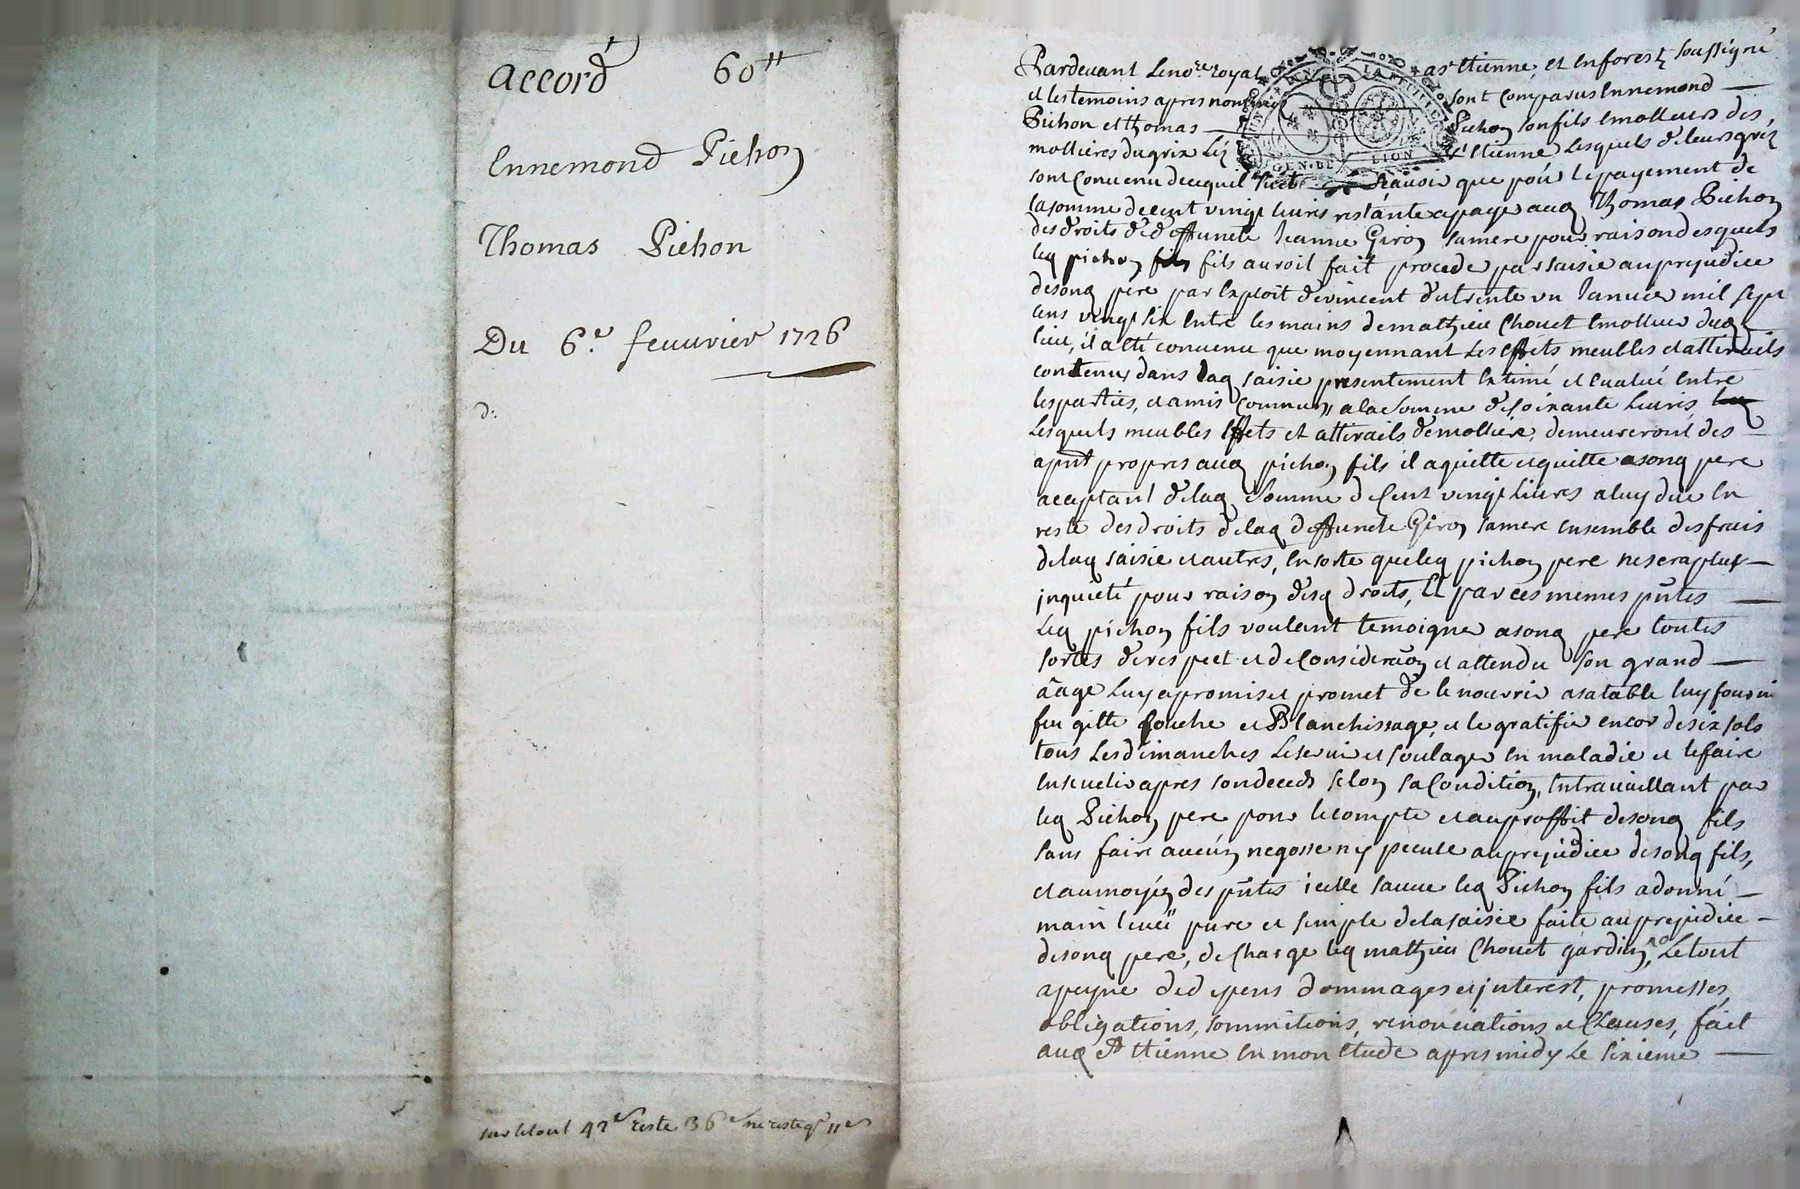 Accord 60ᵗᵗ
Ennemond Pichon
Thomas Pichon
Du 6.ᵉ feuurier 1726
d:
sur letout 42ˢ reste 36ˢ
Pardeuant Leno.ʳᵉ royal a sᵗ Etienne, et en forest soussigné
et les temoins apres nommés sont comparus Ennemond
Pichon et thomas Pichon son fils Emolleurs des
mollieres du grix Lez Sᵗ Etienne Lesquels de leurs grez
sont Conuenu dece quil suit Scauoir que poúr le payement de
la somme de cent vingt liures restante a payer aud Thomas Pichon
des droits de deffuncte Jeanne Giron sa mere pour raison desquels
led pichon fils auroit fait proceder par saisie au prejudice
de sond pere par Exploit de vincent du trente vn Januier mil sept
cens vingt six Entre les mains de mathieu Chouet Emolleur dud
lieu, il a été conuenu que moyennant Les effets meubles et attirails
contenus dans lad saisie presentement Estimé et Eualué Entre
les parties, et amis Communs a la somme de soixante Liures
Lesquels meubles Effets et attirails de moliere, demeureront des
apñt propres aud pichon fils il a quitté et quitte a sond pere
aceptant de lad somme de Cent vingt Liures a luy due En
reste des droits de lad deffuncte Giron sa mere ensemble des frais
de lad saisie et autres, En sorte que led pichon pere ne sera plus
jnquieté pour raison desd droits, Et par ces memes pñtes
Led pichon fils voulant temoigner a sond pere toutes
sortes de respect et de Consideraõn et attendu son grand
aage Luy a promis et promet de le nourrir a sa table luy fournir
feu gitte Couche et Blanchissage, et le gratifier encor de six sols
tous Les dimanches Le seruir et soulager En maladie et le faire
Enseuelir apres son deceds selon sa Condition, En trauaillant par
led Pichon pere pour le compte et au proffit de sond fils
sans faire aucun negosse ny pecule au prejudice de sond fils,
et au moyen des pñtes icelle led Pichon fils a donné
main leueë pure et simple de la saisie faite au prejudice
de sond pere, decharge led mathieu Chouet gardien, Le tout
a peyne de depens dommages et jnterest, promesses
obligations, sommitions, renonciations et Clauses, fait
aud Sᵗ Etienne En mon Etude apres midy Le sixieme